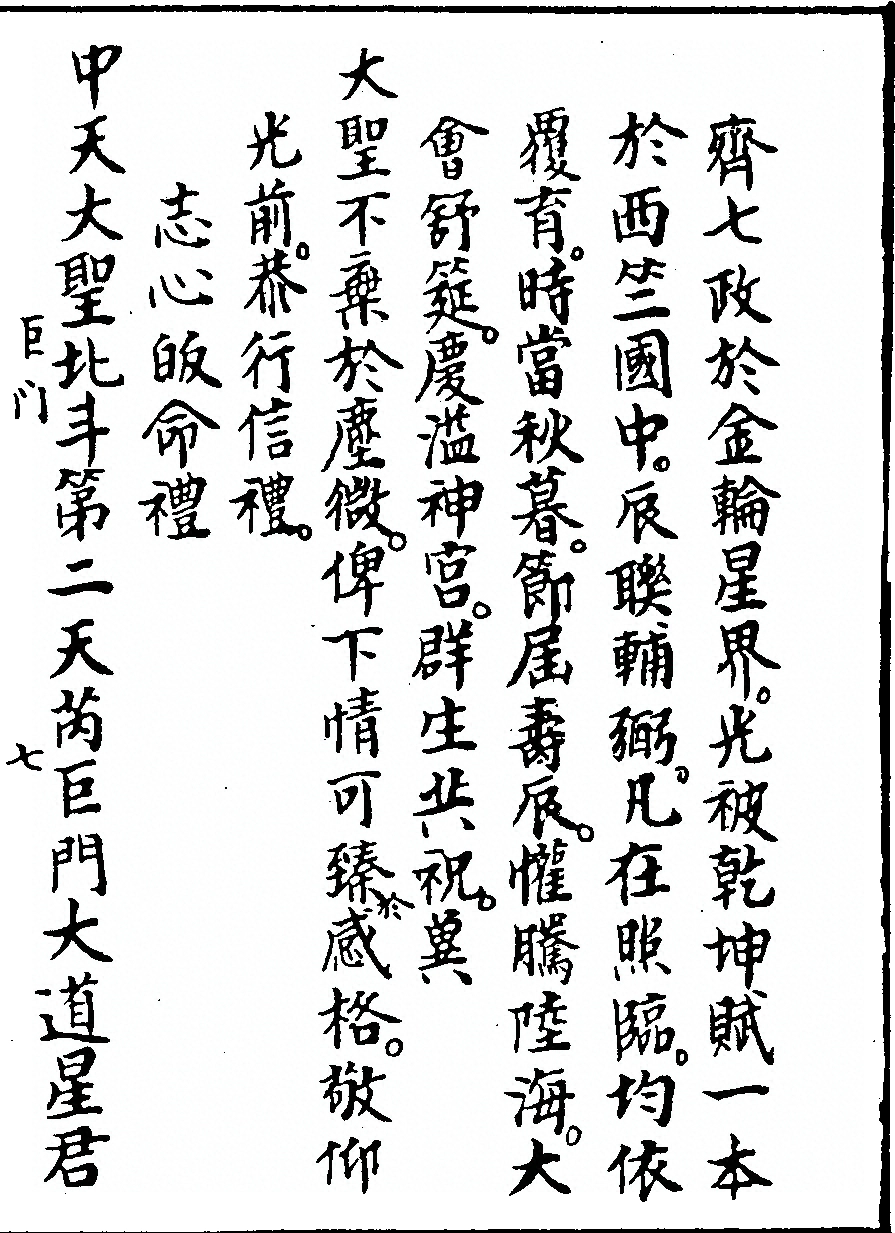 齊七政於金輪星界。光被乾坤賦一本
於西竺國中。辰聯輔弼。凡在照臨。均依
覆育。時當秋暮。節届壽辰。懽騰陸海。大
會舒筵。慶溢神宮。群生共祝。冀
大聖不棄於塵微。俾下情可臻於感格。敬仰
光前。恭行信禮。
志心皈命禮
中天大聖北斗第二天芮巨門大道星君
巨门
七